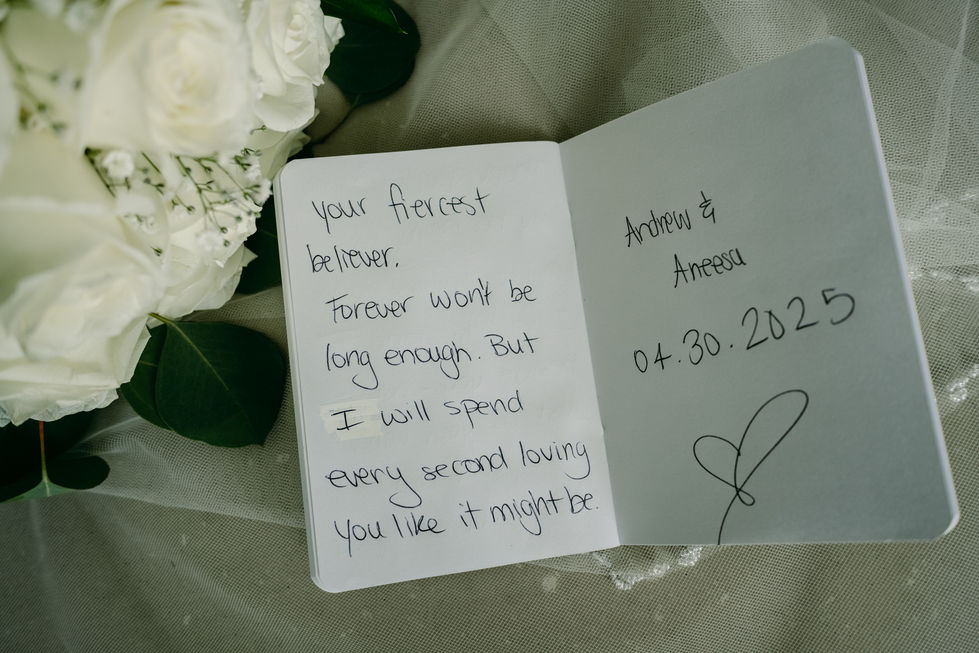 your fiercest
believer.
Forever won't be
long enough. But
I will spend
every second loving
you like it might be.
Andrew &
Aneesa
04.30.2025